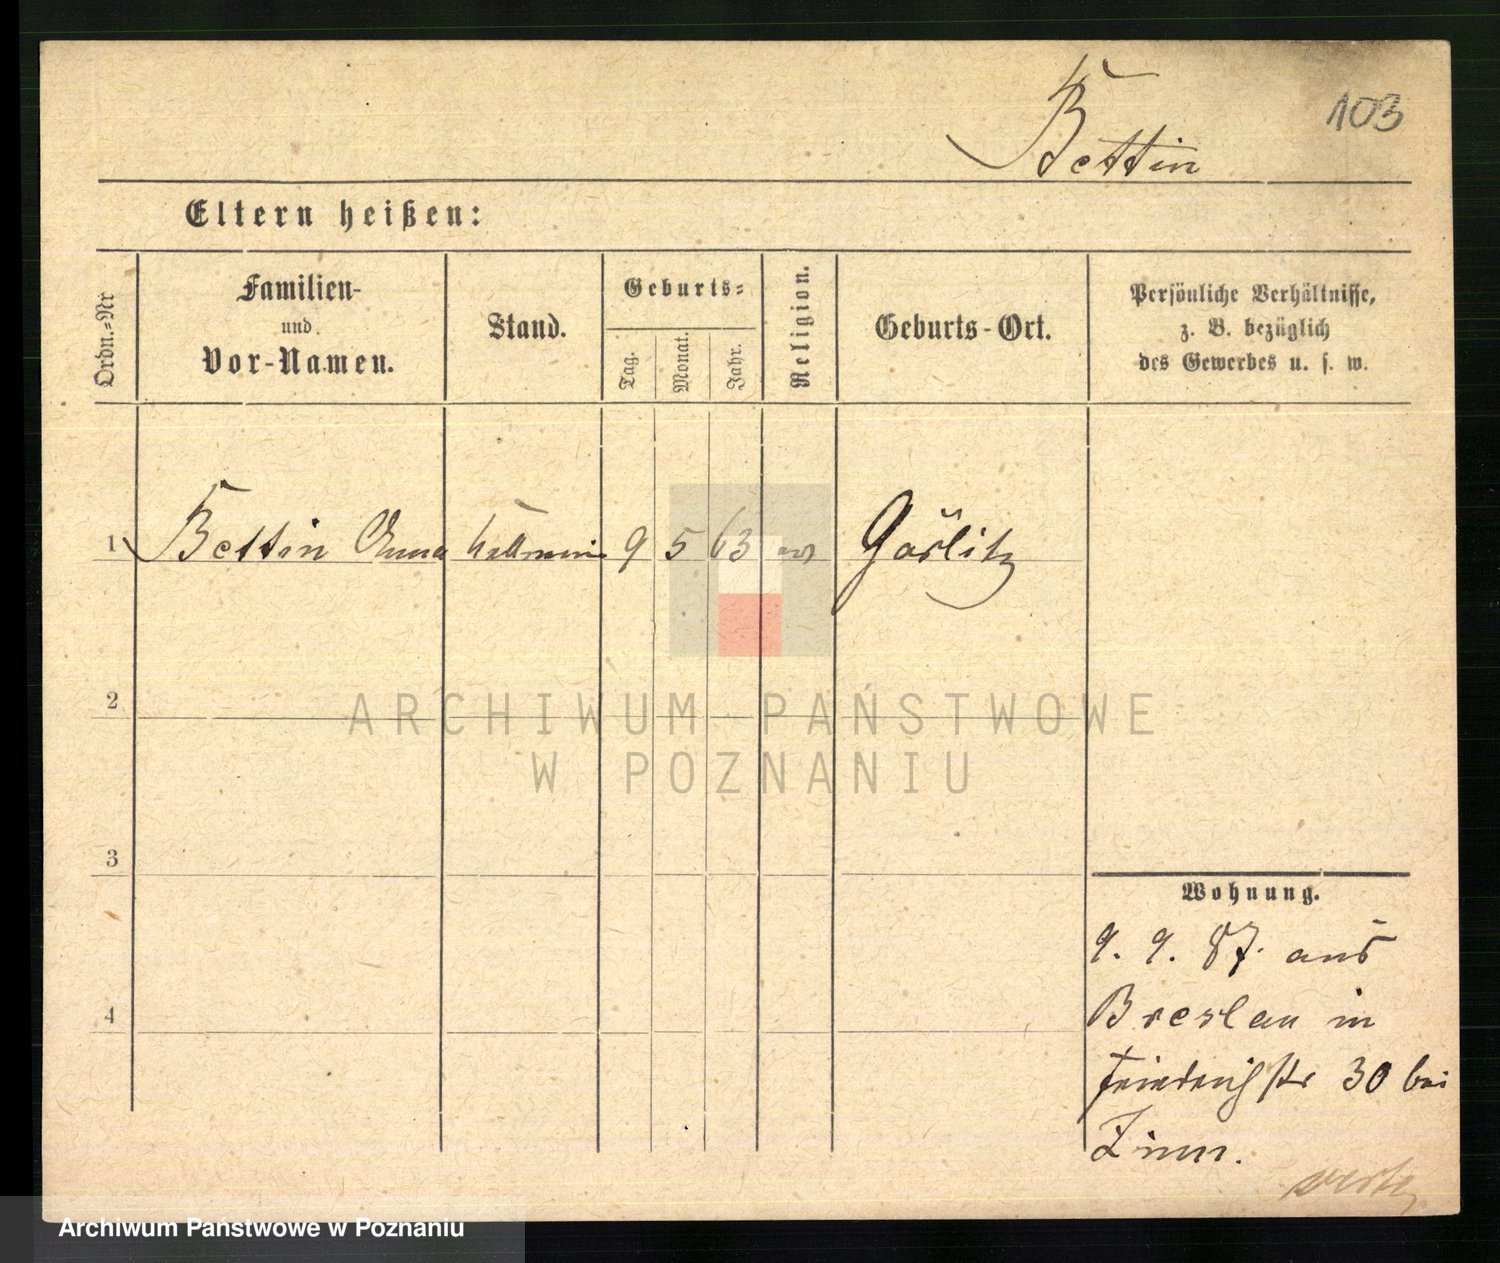 103
Bettin
Eltern heißen:
Ordn.=Nr
Familien-
und
Vor-Namen.
Stand.
Geburts=
Tag.
Monat.
Jahr.
Religion.
Geburts-Ort.
Persönliche Verhältnisse,
z. B. bezüglich
des Gewerbes u. s. w.
1 Bettin Anna 9 5 63 Görlitz
2
3
4
Wohnung.
9. 9. 87. aus
Breslau in
Friedrichstr 30 bei
Zinn.
ARCHIWUM PAŃSTWOWE
W POZNANIU
Archiwum Państwowe w Poznaniu